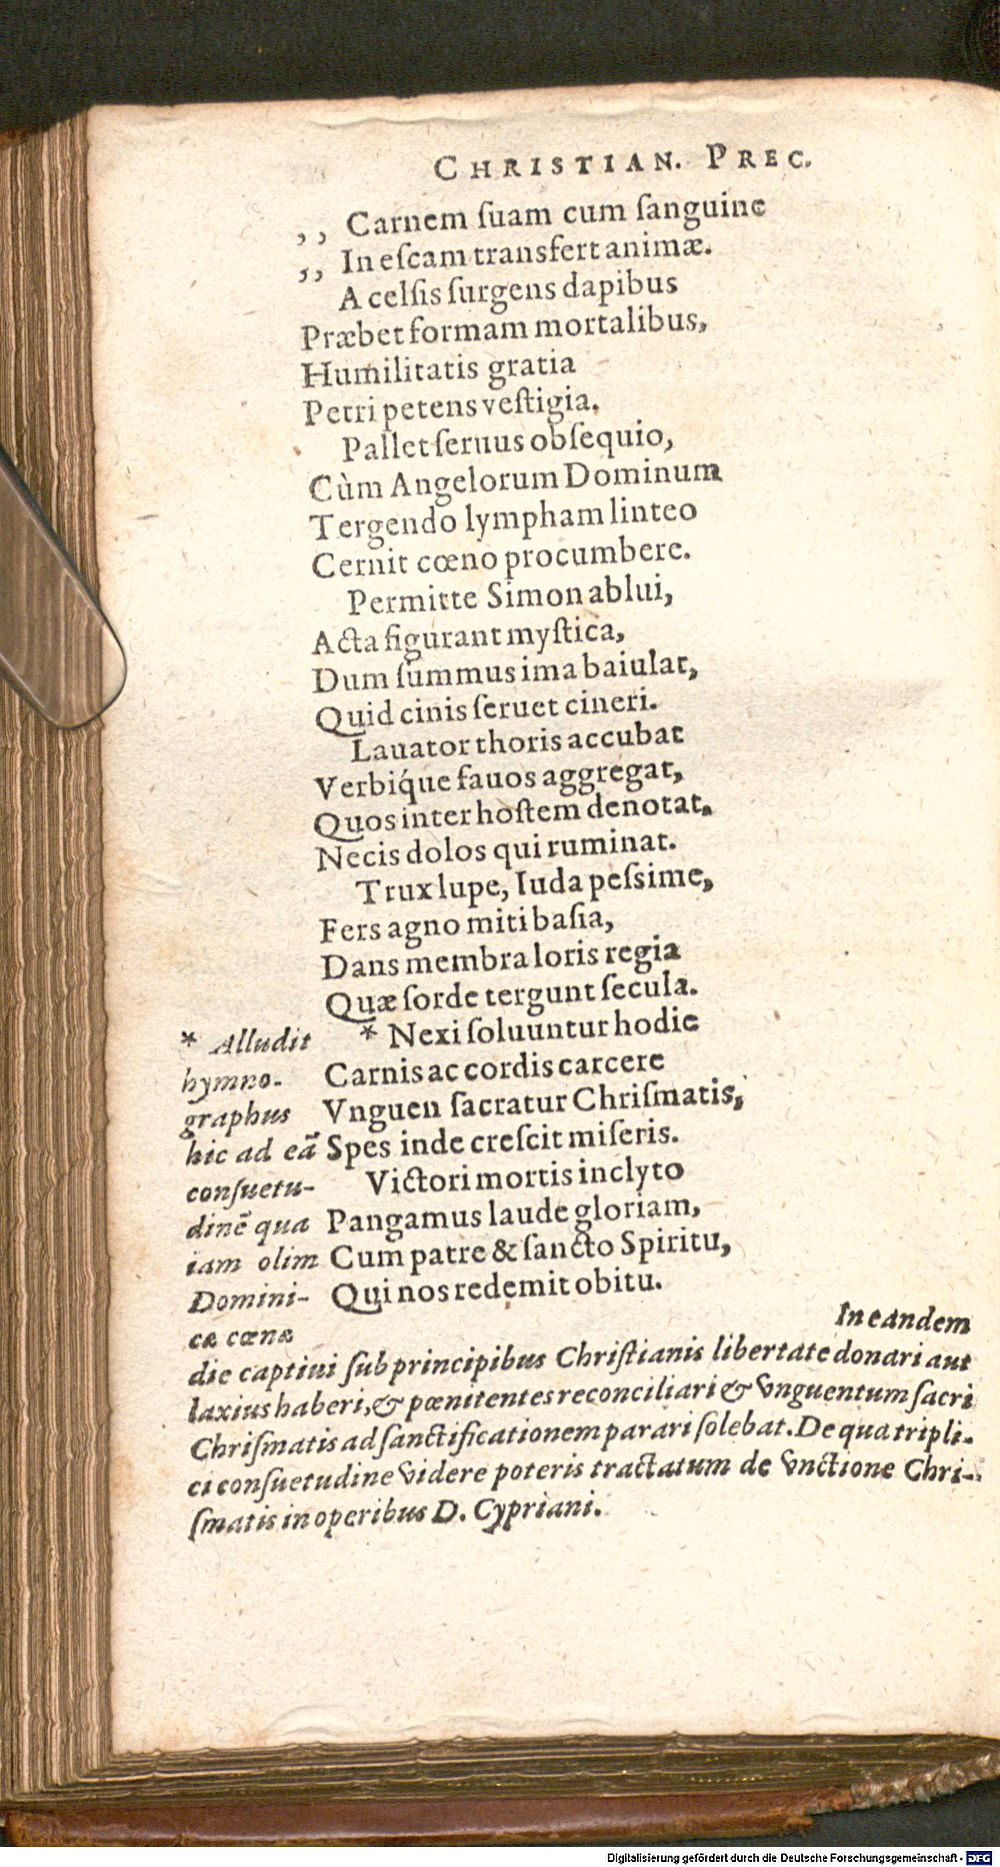 CHRISTIAN. PREC.
,, Carnem ſuam cum ſanguine
,, In eſcam transfert animæ.
A celſis ſurgens dapibus
Præbet formam mortalibus,
Humilitatis gratia
Petri petens veſtigia.
Pallet ſeruus obſequio,
Cùm Angelorum Dominum
Tergendo lympham linteo
Cernit cœno procumbere.
Permitte Simon ablui,
Acta figurant myſtica,
Dum ſummus ima baiulat,
Quid cinis ſeruet cineri.
Lauator thoris accubat
Verbiq́ue fauos aggregat,
Quos inter hoſtem denotat.
Necis dolos qui ruminat.
Trux lupe, Iuda peſsime,
Fers agno miti baſia,
Dans membra loris regia
Quæ ſorde tergunt ſecula.
* Nexi ſoluuntur hodie
Carnis ac cordis carcere
Vnguen ſacratur Chriſmatis,
Spes inde creſcit miſeris.
Victori mortis inclyto
Pangamus laude gloriam,
Cum patre & ſancto Spiritu,
Qui nos redemit obitu.
In eandem
* Alludit
hymno-
graphus
hic ad eã
conſuetu-
dinẽ qua
iam olim
Domini-
cæ cœnæ
die captiui ſub principibus Chriſtianis libertate donari aut
laxius haberi, & pœnitentes reconciliari & vnguentum ſacri
Chriſmatis ad ſanctificationem parari ſolebat. De qua tripli-
ci conſuetudine videre poteris tractatum de vnctione Chri-
ſmatis in operibus D. Cypriani.
Digitalisierung gefördert durch die Deutsche Forschungsgemeinschaft - DFG